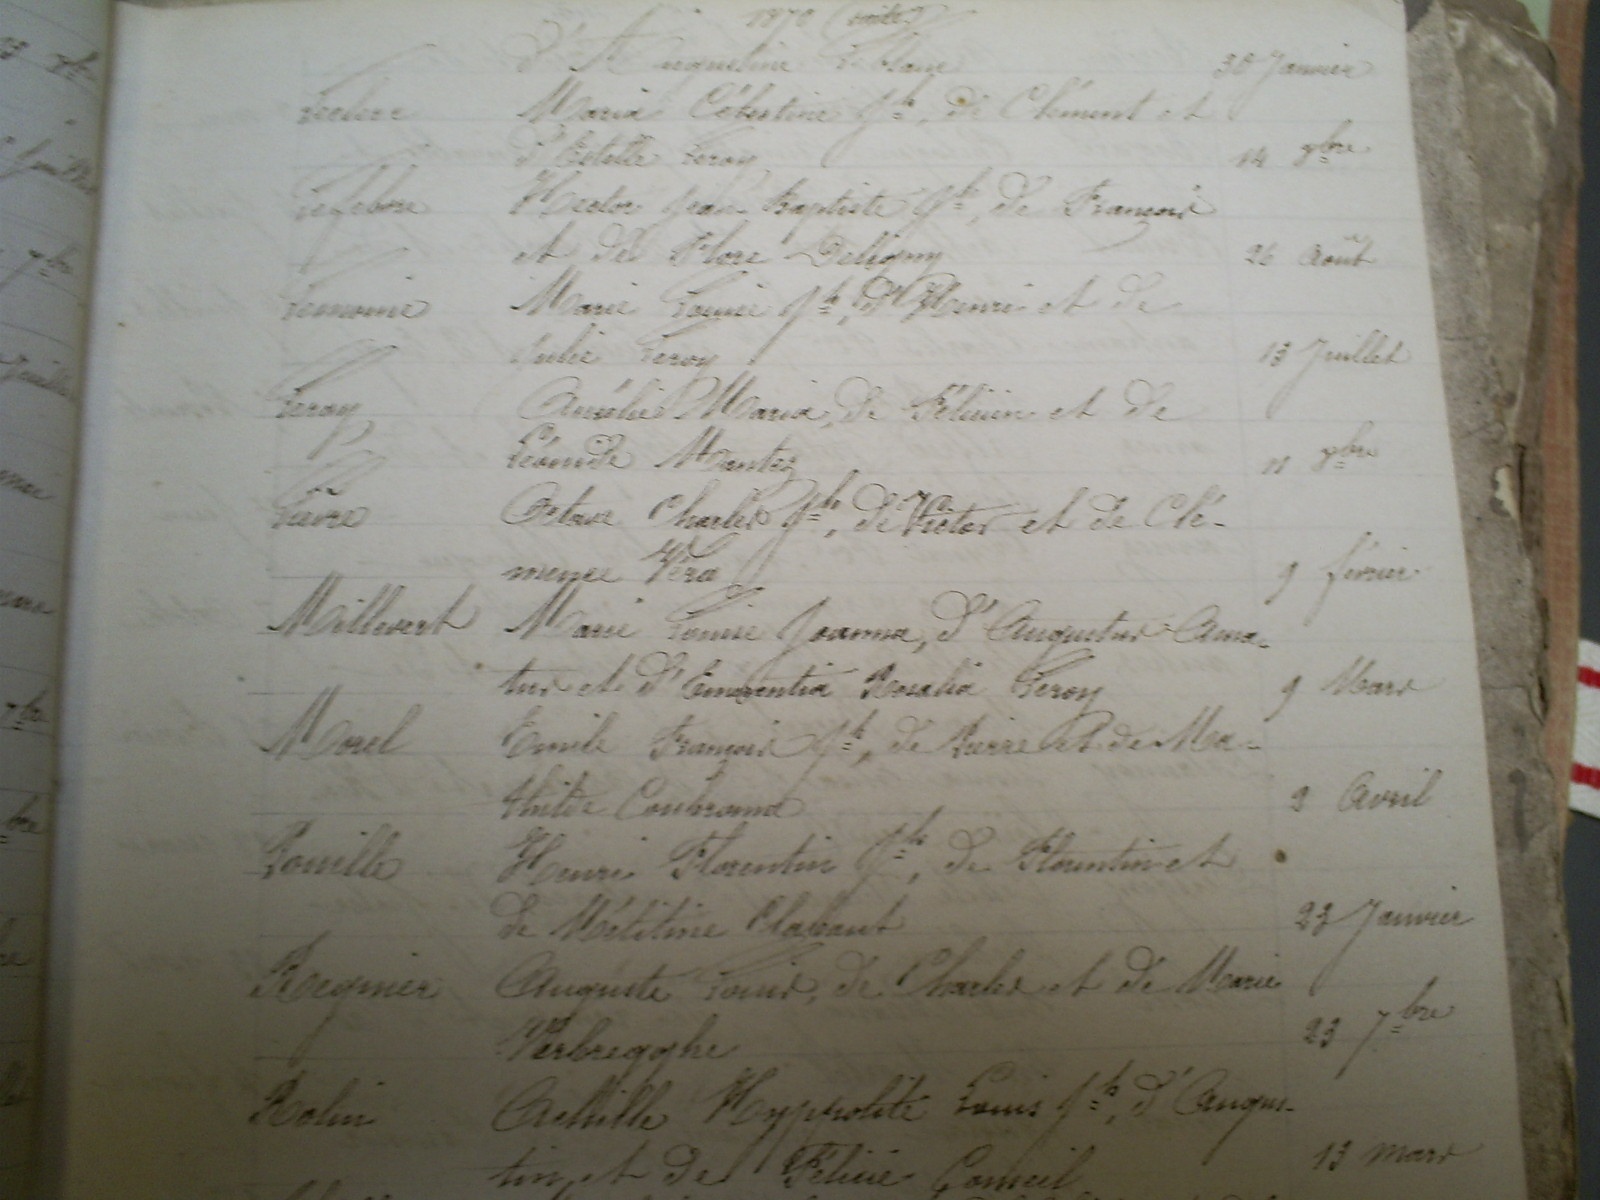 1870 (suite)
d'Augustine Leblanc 30 Janvier
Leclerc Maria Célestine Jh, de Clément et
d'Estelle Leroy 14 9bre
Lefebvre Hector Jean Baptiste Jh, de François
et de Flore Deligny 26 Août
Lemoine Marie Louise Jh, d'Henri et de
Julie Leroy 13 Juillet
Leroy Aurélie Maria, de Félicien et de
Léonide Mantez 11 9bre
Lièvre Octave Charles Jh, de Victor et de Clé-
mence Véra 9 février
Millevert Marie Louise Joanna, d'Augustin Ama-
tur et d'Emerentia Rosalia Leroy 9 Mars
Morel Emile François Jh, de Pierre et de Ma-
thilde 9 Avril
Pouille Henri Florentin Jh, de Florentin et
de Mélitine 23 Janvier
Regnier Auguste Louis, de Charles et de Marie
Verbregghe 23 7bre
Rolin Achille Hyppolite Louis Jh, d'Augus-
tin, et de Félicie Conseil 13 mars